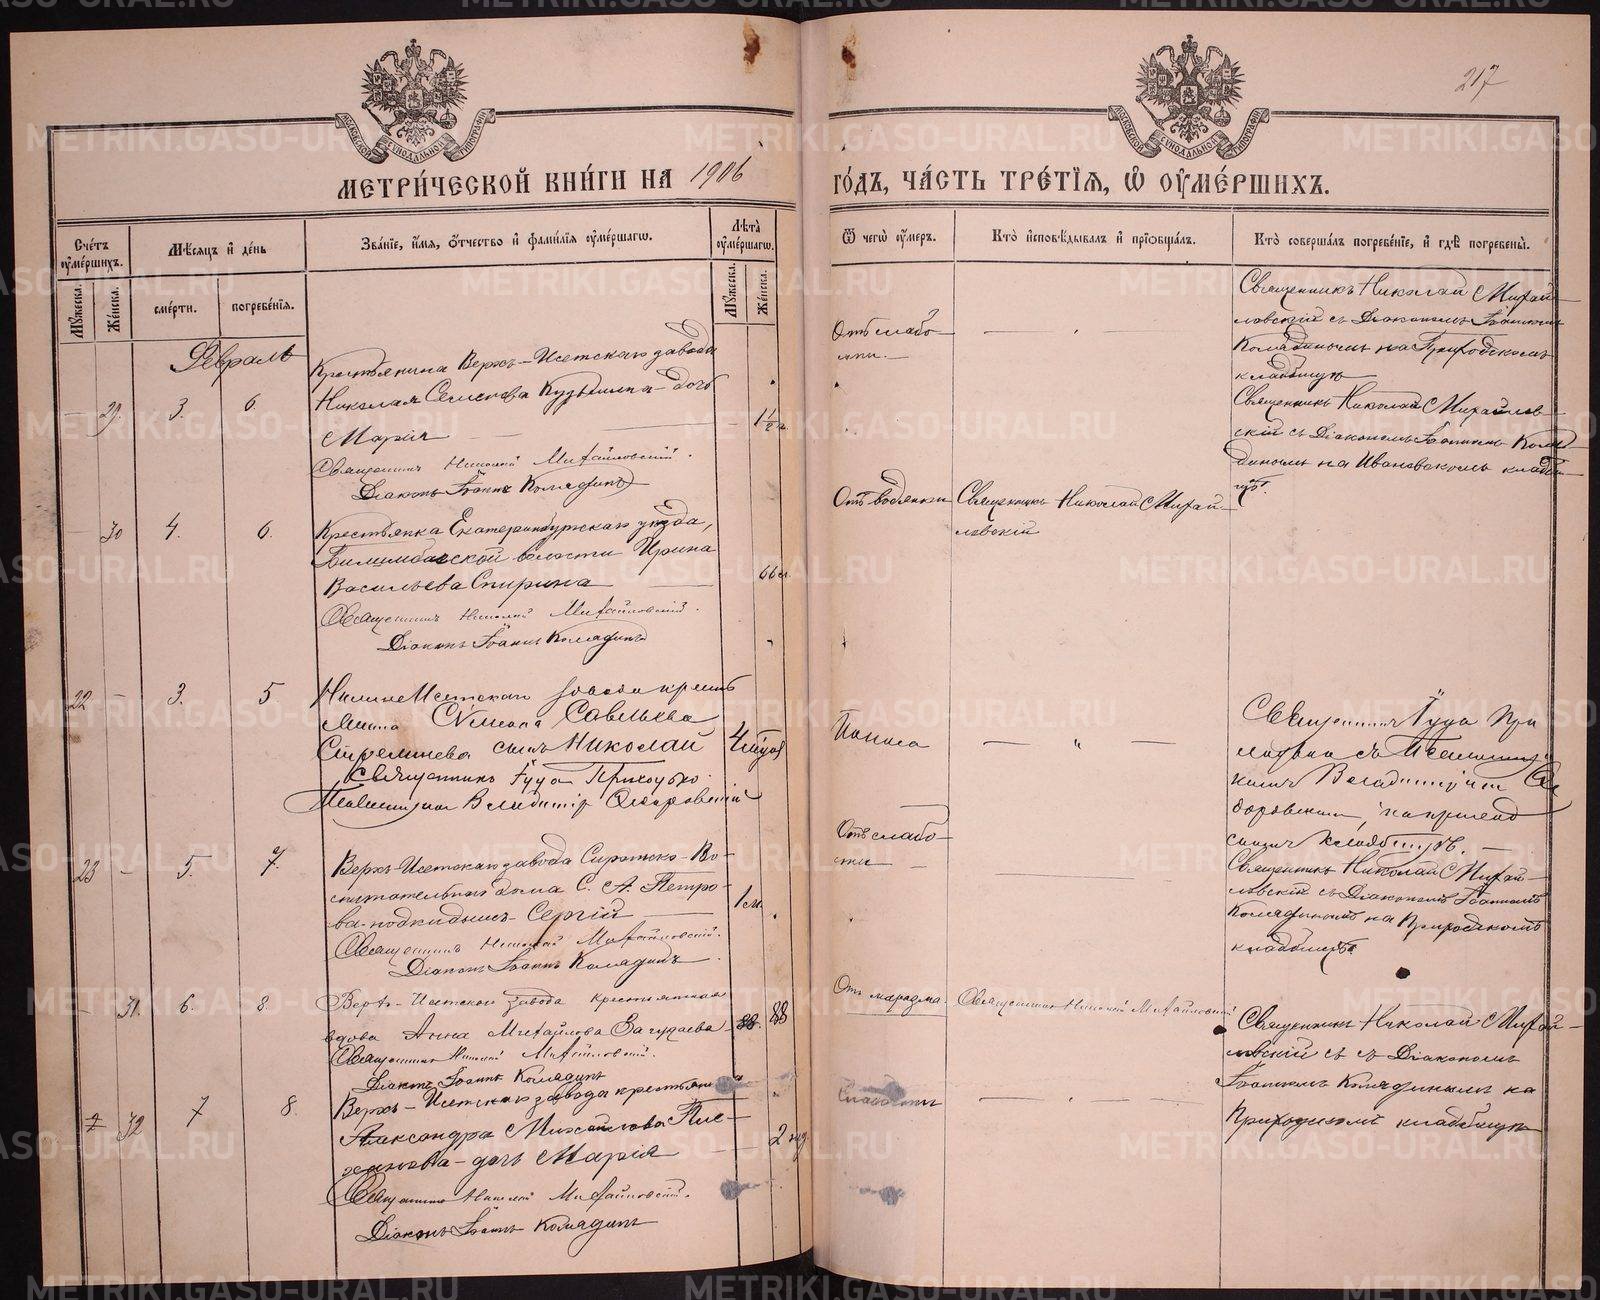 217
МОСКОВСКОЙ СѴНОДАЛЬНОЙ ТИПОГРАФІИ
МОСКОВСКОЙ СѴНОДАЛЬНОЙ ТИПОГРАФІИ
МЕТРИ́ЧЕСКОЙ КНИ́ГИ НА 1906
ГО́ДЪ, ЧА́СТЬ ТРЕ́ТІѦ, Ѡ҆ ОУ҆МЕ́РШИХЪ.
Сче́тъ оу҆ме́ршихъ.
Мѣ́сѧцъ и҆ де́нь
Зва́нїе, и҆́мѧ, ѻ҆́тчество и҆ фами́лїѧ оу҆ме́ршагѡ.
Лѣ́та оу҆ме́ршагѡ.
Мꙋ́жеска.
Же́нска.
сме́рти.
погребе́нїѧ.
Мꙋ́жеска.
Же́нска.
Ѿ чегѡ̀ оу҆́меръ.
Кто̀ и҆сповѣ́дывалъ и҆ прїѡбща́лъ.
Кто̀ соверша́лъ погребе́нїе, и҆ гдѣ̀ погребены̀.
Февраль
29. 3. 6.
Крестьянина Верхъ-Исетскаго завода
Николая Семенова Кузьмина - дочь
Марія
Священникъ Николай Михайловскій.
Діаконъ Іоаннъ Колядинъ
1½ г.
Отъ слабо-
сти.
Священникъ Николай Михай-
ловскій съ Діакономъ Іоанномъ
Колядинымъ на Приходскомъ
кладбищѣ
30 4. 6.
Крестьянка Екатеринбургскаго уѣзда,
Билимбаевской волости Ирина
Васильева Спирина
Священникъ Николай Михайловскій.
Діаконъ Іоаннъ Колядинъ
66 л.
Отъ водянки
Священникъ Николай Михай-
ловскій
Священникъ Николай Михайлов-
скій съ Діакономъ Іоанномъ Коля-
динымъ на Ивановскомъ кладби-
щѣ.
22 - 3. 5
Нижне Исетскаго завода крестъ
янина Симеона Савельева
Стрелинева сынъ Николай
Священникъ Іуда Приходько
Псаломщикъ Владиміръ Сидоровскій
4
Священникъ Іуда При
ходько съ Псаломщи
комъ Владиміромъ Си
доровскимъ, на приход
скомъ кладбищѣ.
23 - 5. 7.
Верхъ-Исетскаго завода Сиротско-Во-
спитательнаго дома С. А. Петро-
ва-подкидышъ Сергій
Священникъ Николай Михайловскій.
Діаконъ Іоаннъ Колядинъ.
1 м.
Отъ слабо-
сти
Священникъ Николай Михай-
ловскій съ Діакономъ Іоанномъ
Колядинымъ на Приходскомъ
кладбищѣ
- 31. 6. 8.
Верхъ-Исетскаго завода крестьянская
вдова Анна Михайлова Загудаева
Священникъ Николай Михайловскій.
Діаконъ Іоаннъ Колядинъ
88. 88
Отъ маразма.
Священникъ Николай Михайловскій
Священникъ Николай Михай-
ловскій съ съ Діакономъ
Іоанномъ Колядинымъ на
Приходскомъ кладбищѣ
32 7 8.
Верхъ-Исетскаго завода крестьян
Александра Михайлова Пле-
ханова - дочь Марія
Священникъ Николай Михайловскій.
Діаконъ Іоаннъ Колядинъ
2 нед
Слабости
METRIKI.GASO-URAL.RU